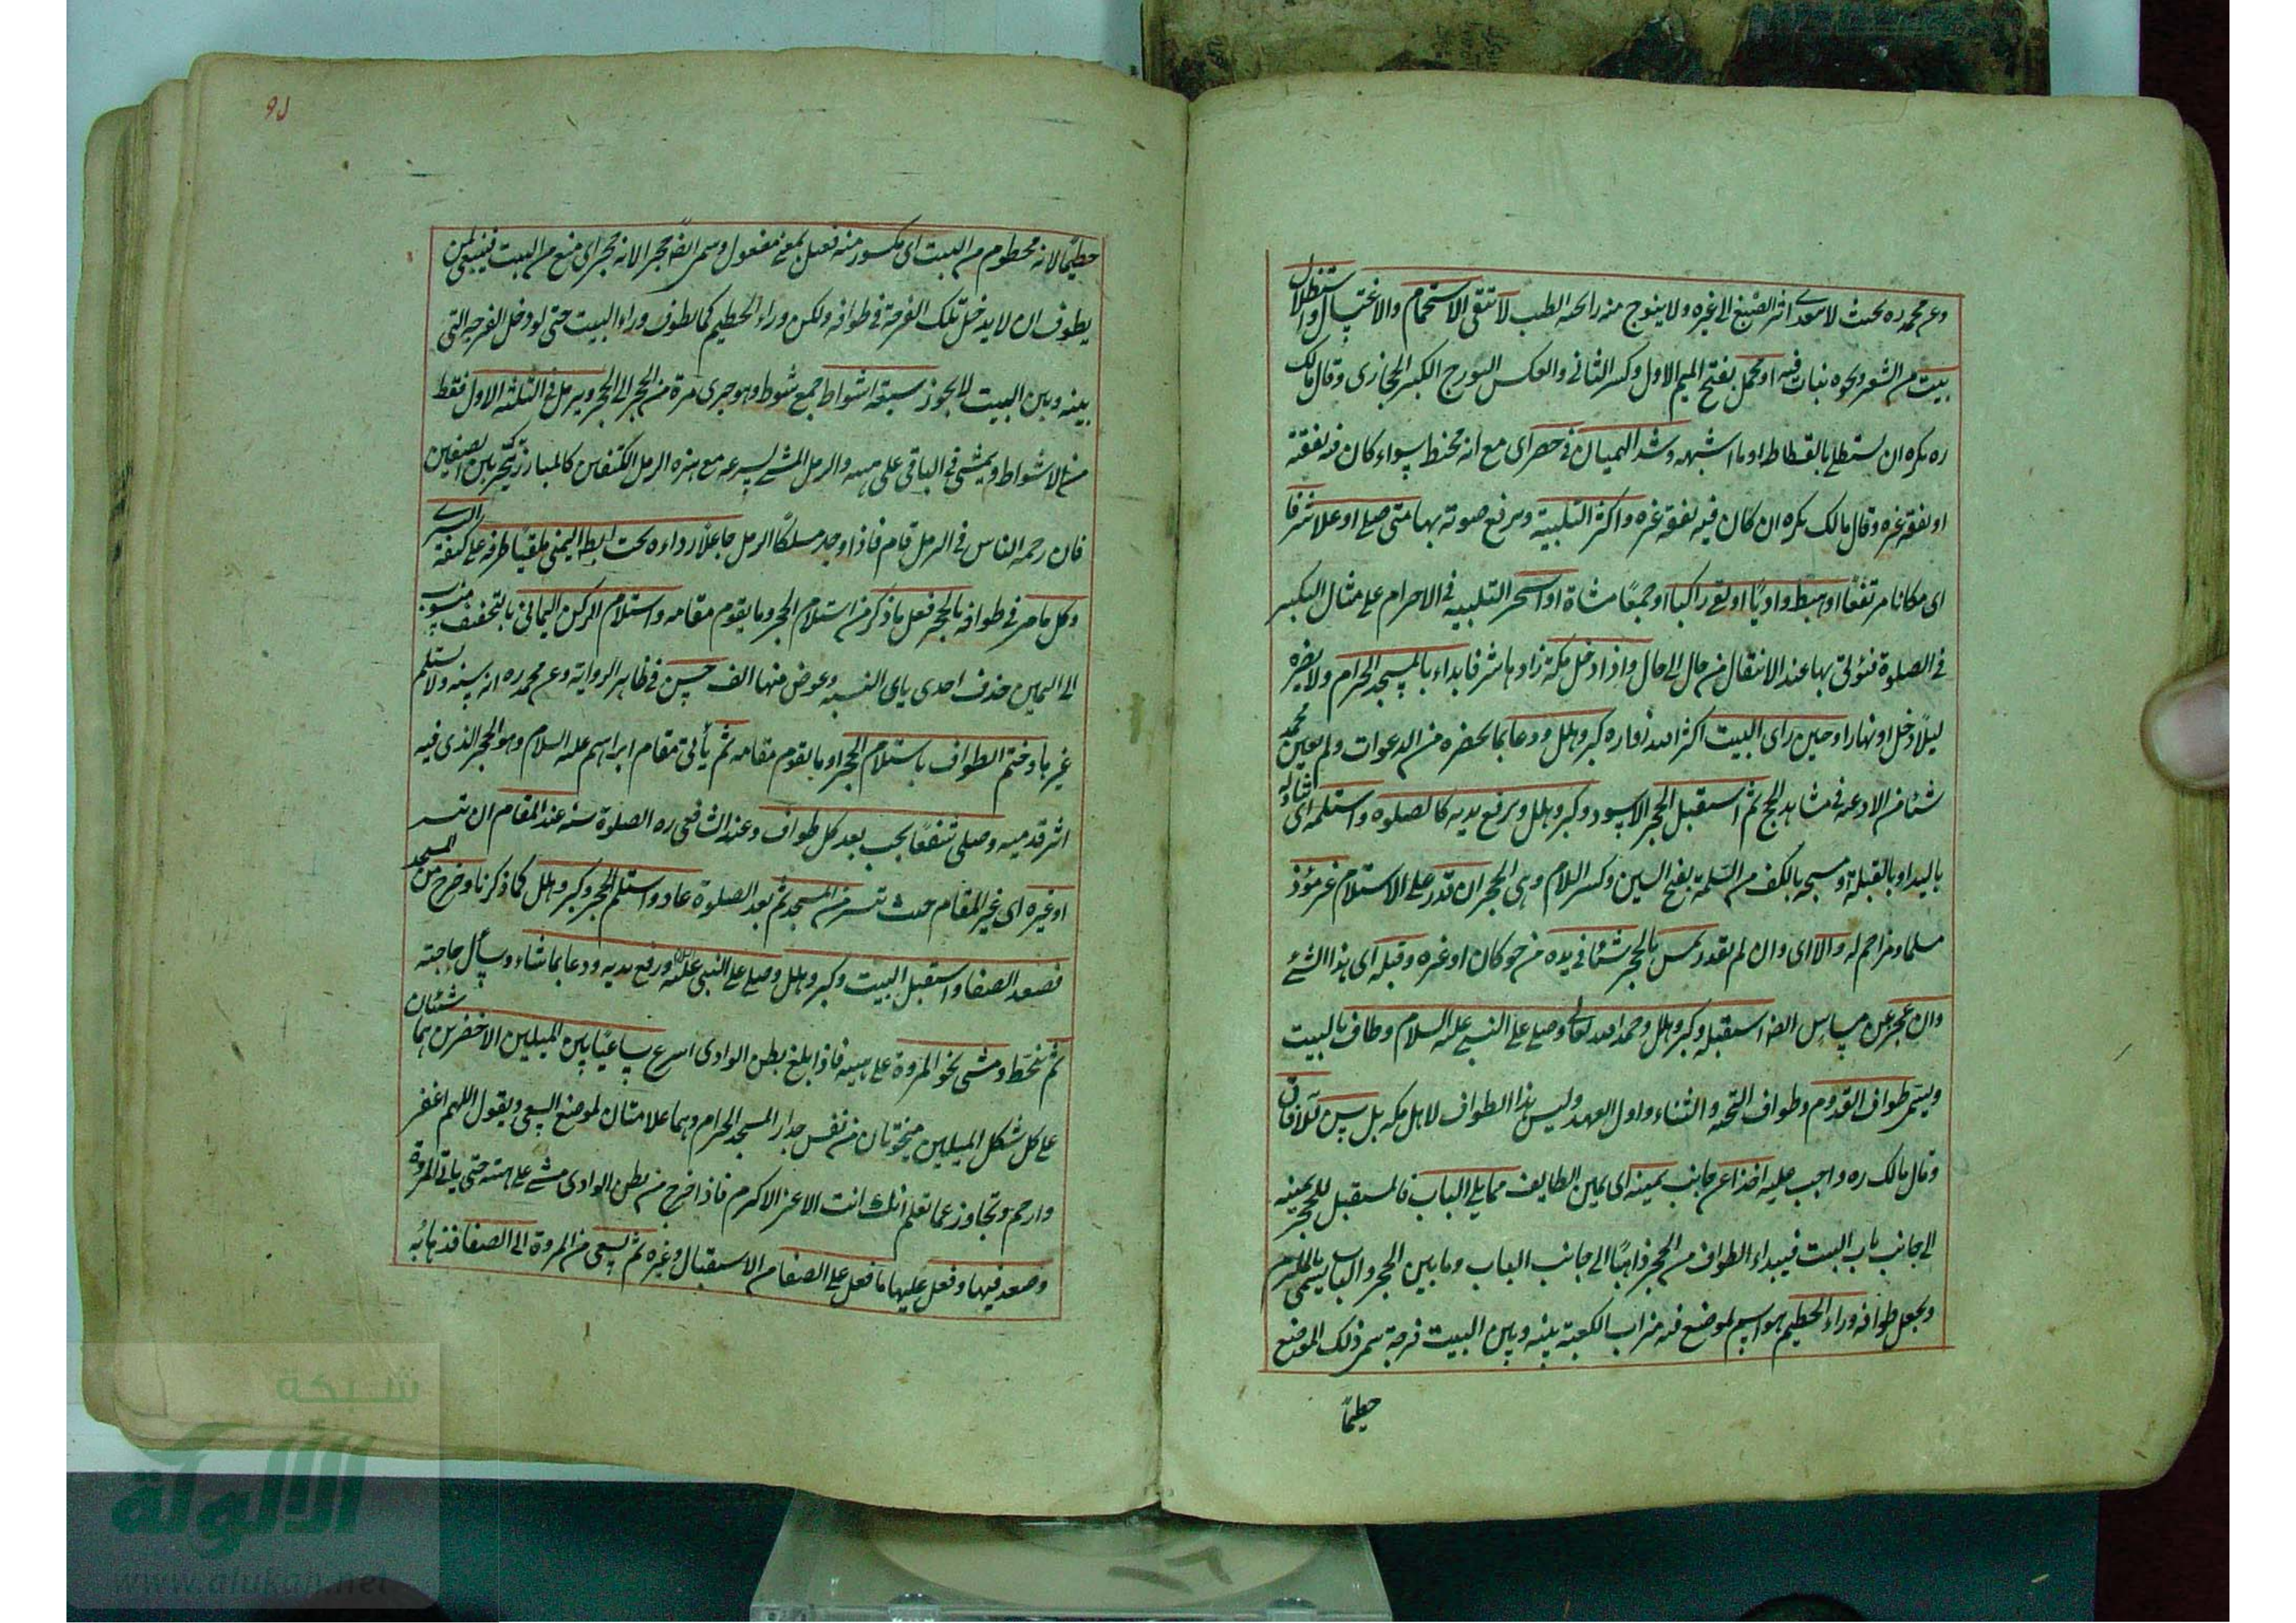 وعن محمد ره بحيث لا يتعدى اثر الصبغ الى غيره ولا يفوح منه رائحة الطيب لا يتقى الاستحمام والاغتسال والاستظلال
ببيت من الشعر ونحوه بنبات فيه او محمل بفتح الميم الاول وكسر الثاني والعكس الهودج الكبير الحجازى وقال مالك
ره يكره ان يستظل بالفسطاط او ما اشبهه وشد الهميان في خصره اى مع انه مخيط سواء كان فيه نفقته
او نفقة غيره وقال مالك يكره ان كان فيه نفقة غيره واكثر التلبية ويرفع صوته بها متى صلى او علا شرفا
اى مكانا مرتفعا او هبط واديا او لقى راكبا او جمعا مشاة او اسحر التلبية في الاحرام على مثال التكبير
في الصلوة فيؤتى بها عند الانتقال من حال الى حال واذا دخل مكة زادها شرفا بداء بالمسجد الحرام ولا يضره
ليلا دخل او نهارا وحين راى البيت اكثر الله زواره كبر وهلل ودعا بما يحضره من الدعوات ولم يعين محمد
شيئا من الادعية في مشاهد الحج ثم استقبل الحجر الاسود وكبر وهلل ويرفع يديه كالصلوة واستلمه اى
باليد او بالقبلة او مسحه بالكف من السلمة بفتح السين وكسر اللام وهى الحجر ان قدر على الاستلام غير مؤذ
مسلما ومزاحم له والا اى وان لم يقدر يمس بالحجر شيئا في يده من جوكان او غيره وقبله اى هذا الشئ
وان عجز عن مساس الحجر استقبله وكبر وهلل وحمد الله تعالى وصلى على النبي عليه السلام وطاف بالبيت
ويسمى طواف القدوم وطواف التحية والثناء واول العهد وليس هذا الطواف لاهل مكة بل يسن للآفاقى
وقال مالك ره واجب عليه اخذا عن جانب يمينه اى يمين الطايف مما يلى الباب فالمستقبل للحجر يمينه
الى جانب باب البيت فيبداء الطواف من الحجر ذاهبا الى جانب الباب وما بين الحجر والباب يسمى بالملتزم
ويجعل طوافه وراء الحطيم هو اسم لموضع فيه ميزاب الكعبة بينه وبين البيت فرجة سمى ذلك الموضع
حطيمًا
حطيمًا لانه محطوم من البيت اى مكسور منه فعيل بمعنى مفعول وسمى ايضا حجرا لانه حجر اى منع من البيت فينبغى لمن
يطوف ان لا يدخل تلك الفرجة في طوافه ولكن وراء الحطيم كما يطوف وراء البيت حتى لو دخل الفرجة التى
بينه وبين البيت لا يجوز سبعة اشواط جمع شوط وهو جرى مرة من الحجر الى الحجر ويرمل في الثلثة الاول فقط
من الاشواط ويمشى في الباقى على هينه والرمل المشى بسرعة مع هزة الكتفين كالمبارز يتبختر بين الصفين
فان زحمه الناس في الرمل قام فاذا وجد مسلكا الرمل جاعلا رداءه تحت ابطه اليمنى ملقيا طرفه على كتفه اليسرى
وكل ما مر في طوافه بالحجر فعل ما ذكر من استلام الحجر وما يقوم مقامه واستلام الركن اليمانى بالتخفيف منسوب
الى اليمين حذف احدى ياى النسبة وعوض منها الف حسن في ظاهر الرواية وعن محمد ره انه سنة ولا يستلم
غيرها وختم الطواف باستلام الحجر او ما يقوم مقامه ثم يأتى مقام ابراهيم عليه السلام وهو الحجر الذى فيه
اثر قدميه وصلى شفعا يجب بعد كل طواف وعند الشافعى ره الصلوة سنة عند المقام ان تيسر
او غيره اى غير المقام حيث تيسر من المسجد ثم بعد الصلوة عاد واستلم الحجر وكبر وهلل كما ذكرنا وخرج من المسجد
فصعد الصفا واستقبل البيت وكبر وهلل وصلى على النبي عليه السلام ورفع يديه ودعا بما شاء وسأل حاجته
ثم ينحط ومشى نحو المروة على هينه فاذا بلغ بطن الوادى اسرع ساعيا بين الميلين الاخضرين هما شيئان
على كل شكل الميلين منحوتان من نفس جدار المسجد الحرام وهما علامتان لموضع السعى ويقول اللهم اغفر
وارحم وتجاوز عما تعلم انك انت الاعز الاكرم فاذا خرج من بطن الوادى مشى على هينه حتى ياتى المروة
وصعد فيها وفعل عليها ما فعل على الصفا من الاستقبال وغيره ثم يسعى من المروة الى الصفا فذهابه
شبكة
الألوكة
www.alukah.net